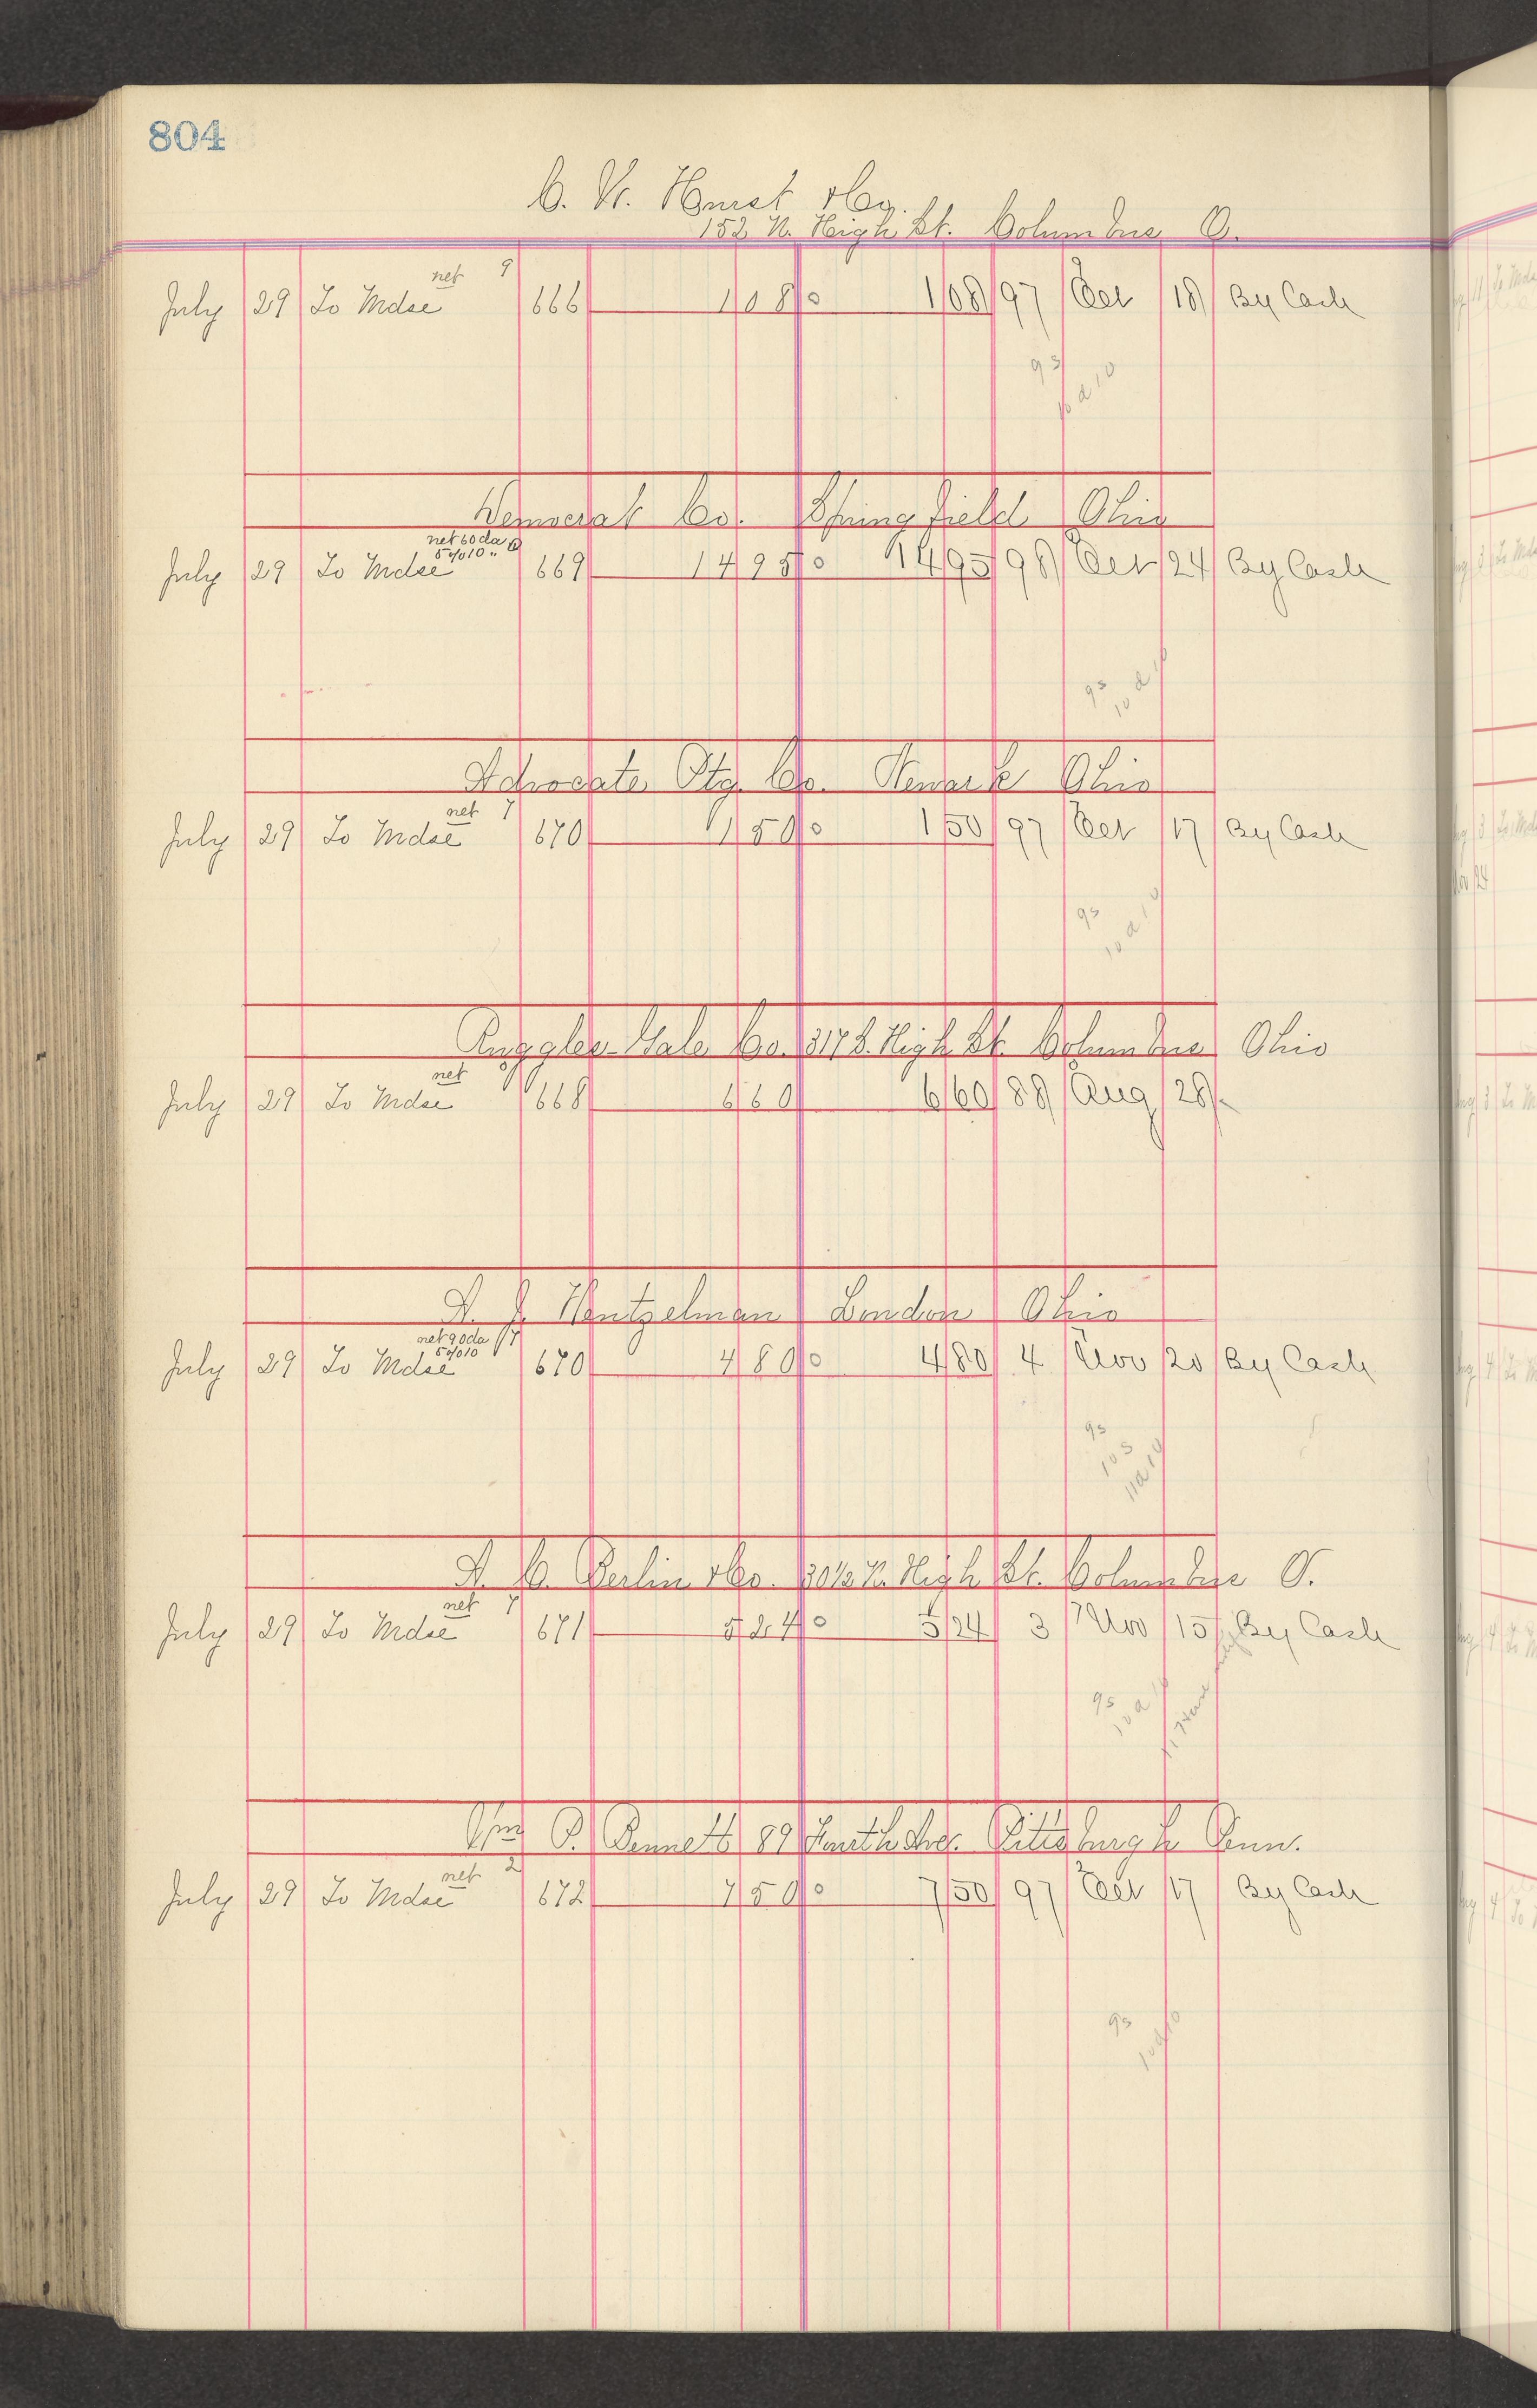 804
C. H. Hurst & Co.
152 N. High St. Columbus O.
net 9
July 29 To Mdse 666 1 08 0 1 08 97 Oct 18 By Cash
93
10 a 10
Democrat Co. Springfield Ohio
net 60 da
5% 10 "
July 29 To Mdse 669 14 95 0 14 95 98 Oct 24 By Cash
93
10 a 10
Advocate Ptg. Co. Newark Ohio
net 7
July 29 To Mdse 670 1 50 0 1 50 97 Oct 17 By Cash
93
10 a 10
Ruggles Gale Co. 317 S. High St. Columbus Ohio
net
July 29 To Mdse 668 6 60 6 60 88 Aug 28
London Ohio
net 90 da 7
5% 10
July 29 To Mdse 670 4 80 0 4 80 4 Nov 20 By Cash
93
10 3
11 a 19
Co. N. High St. Columbus O.
net 7
July 29 To Mdse 671 5 24 0 5 24 3 Nov 15 By Cash
93
10 a 10
Wm P. Bennett 89 Fourth Ave. Pittsburgh Penn.
net 2
July 29 To Mdse 672 7 50 0 7 50 97 Oct 17 By Cash
93
10 a 10